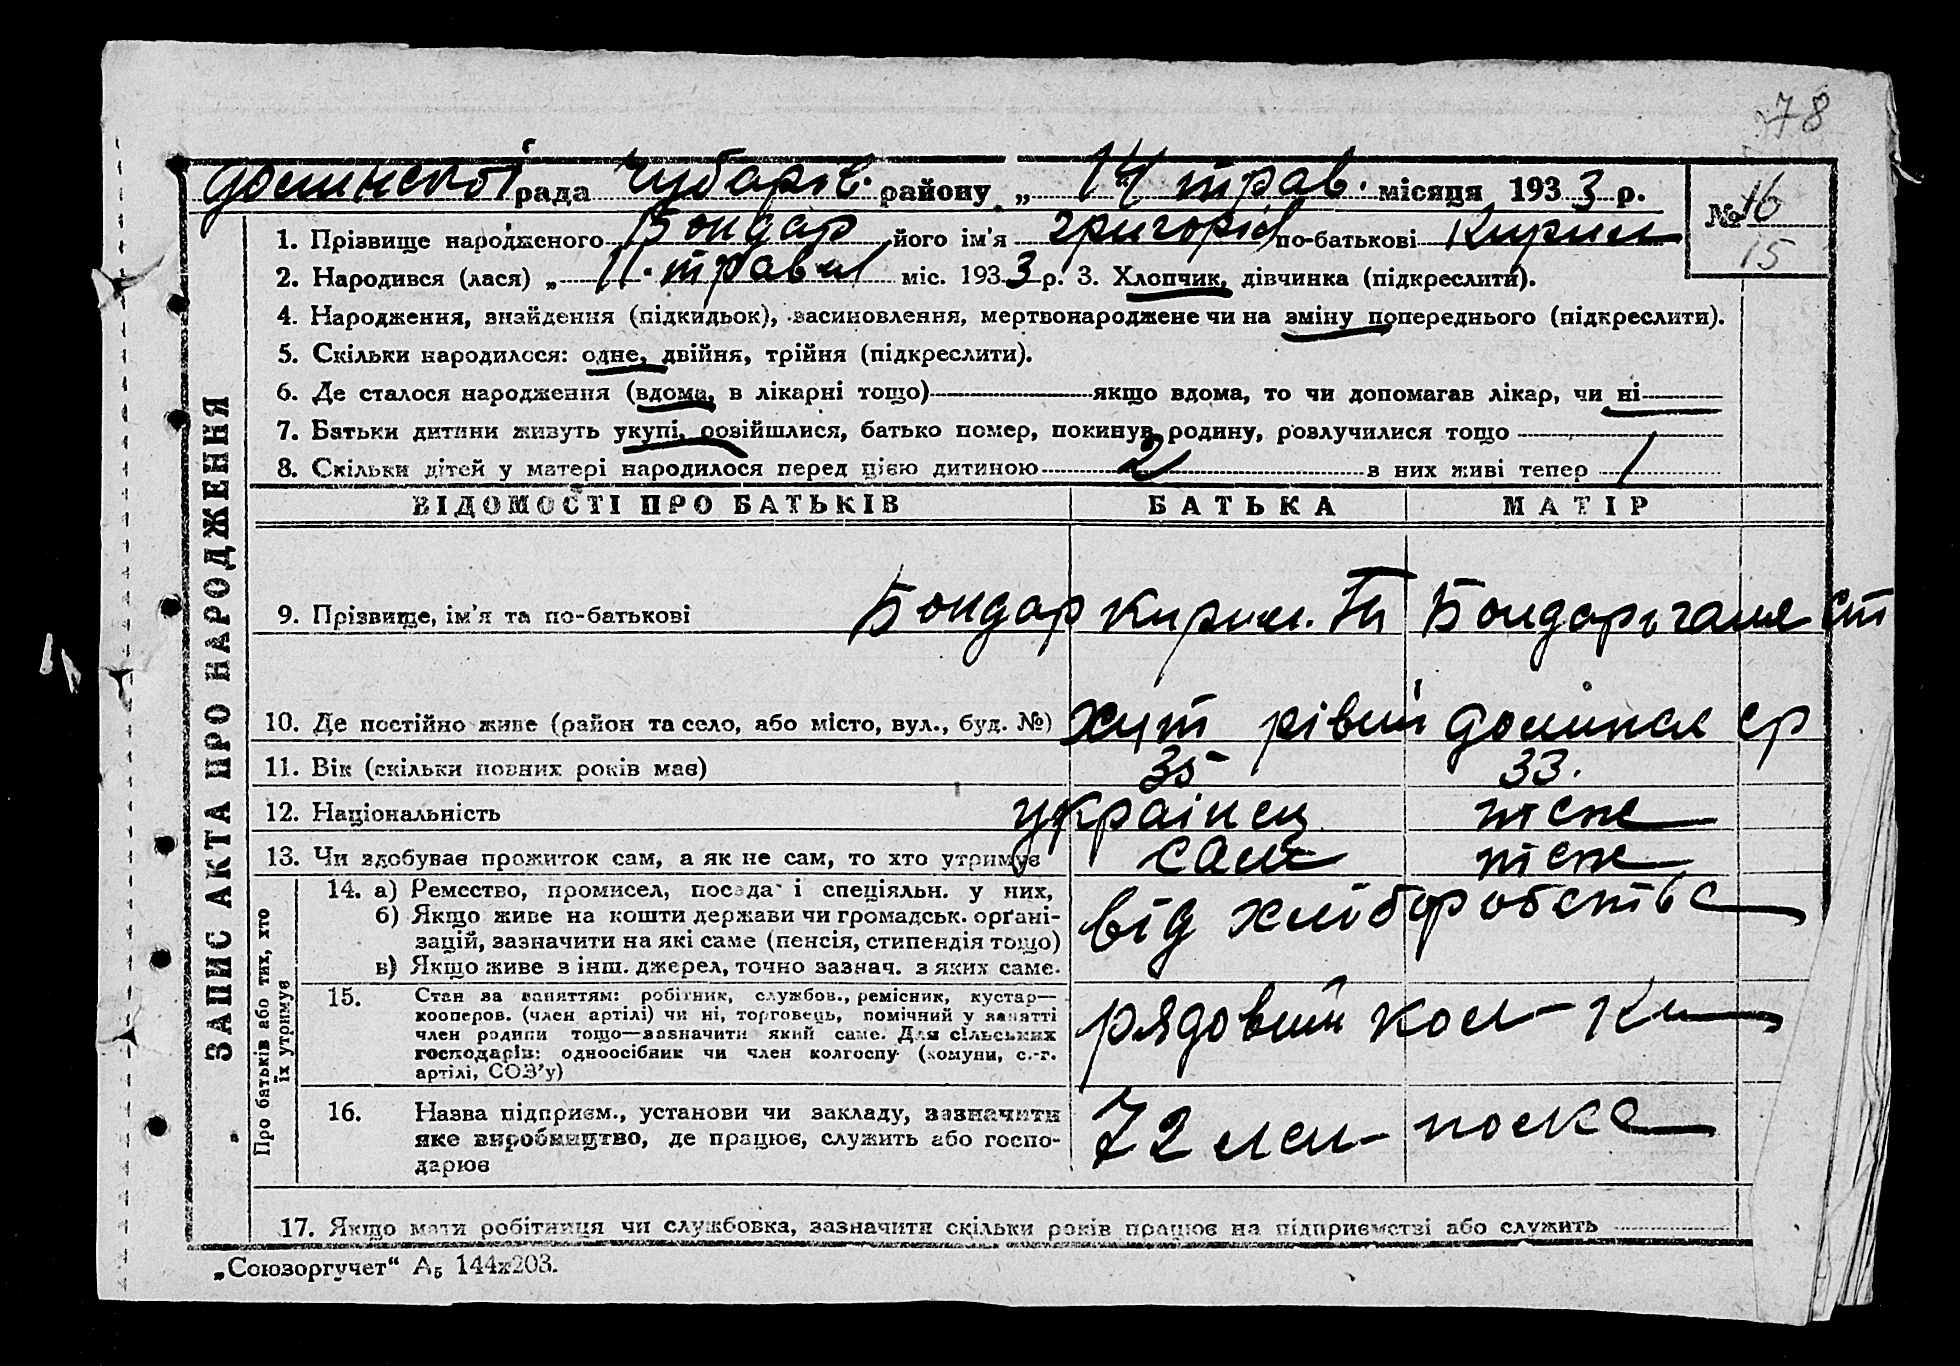 78
Долинської рада Чубарів. району „ 14 " трав. місяця 1933 р. № 16
15
1. Прізвище народженого Бондар його ім'я Григорій по-батькові Кирил
2. Народився (лася) „ 11. травня міс. 1933 р. 3. Хлопчик, дівчинка (підкреслити).
4. Народження, знайдення (підкидьок), засиновлення, мертвонароджене чи на зміну попереднього (підкреслити).
5. Скільки народилося: одне, двійня, трійня (підкреслити).
6. Де сталося народження (вдома, в лікарні тощо) якщо вдома, то чи допомагав лікар, чи ні
7. Батьки дитини живуть укупі, розійшлися, батько помер, покинув родину, розлучилися тощо
8. Скільки дітей у матері народилося перед цією дитиною 2 з них живі тепер 1
ЗАПИС АКТА ПРО НАРОДЖЕННЯ
ВІДОМОСТІ ПРО БАТЬКІВ БАТЬКА МАТІР
9. Прізвище, ім'я та по-батькові Бондар Кирил. Бондарь Галя Ст
10. Де постійно живе (район та село, або місто, вул., буд. №) хут рівний ср
11. Вік (скільки повних років має) 35 33.
12. Національність українец теж
13. Чи здобуває прожиток сам, а як не сам, то хто утримує сам теж
Про батьків або тих, хто їх утримує
14. а) Ремество, промисел, посада і спеціяльн. у них,
б) Якщо живе на кошти держави чи громадськ. органі-
зацій, зазначити на які саме (пенсія, стипендія тощо)
в) Якщо живе з інш. джерел, точно зазнач. з яких саме.
від хліборобства
15. Стан за заняттям: робітник, службов., ремісник, кустар—
кооперов. (член артілі) чи ні, торговець, помічний у занятті
член родини тощо—зазначити який саме. Для сільських
господарів: одноосібник чи член колгоспу (комуни, с.-г.
артілі, СОЗ'у)
рядовий кол-
16. Назва підприєм., установи чи закладу, зазначити
яке виробництво, де працює, служить або госпо-
дарює
17. Якщо мати робітниця чи службовка, зазначити скільки років працює на підприємстві або служить
„Союзоргучет" А5 144х203.